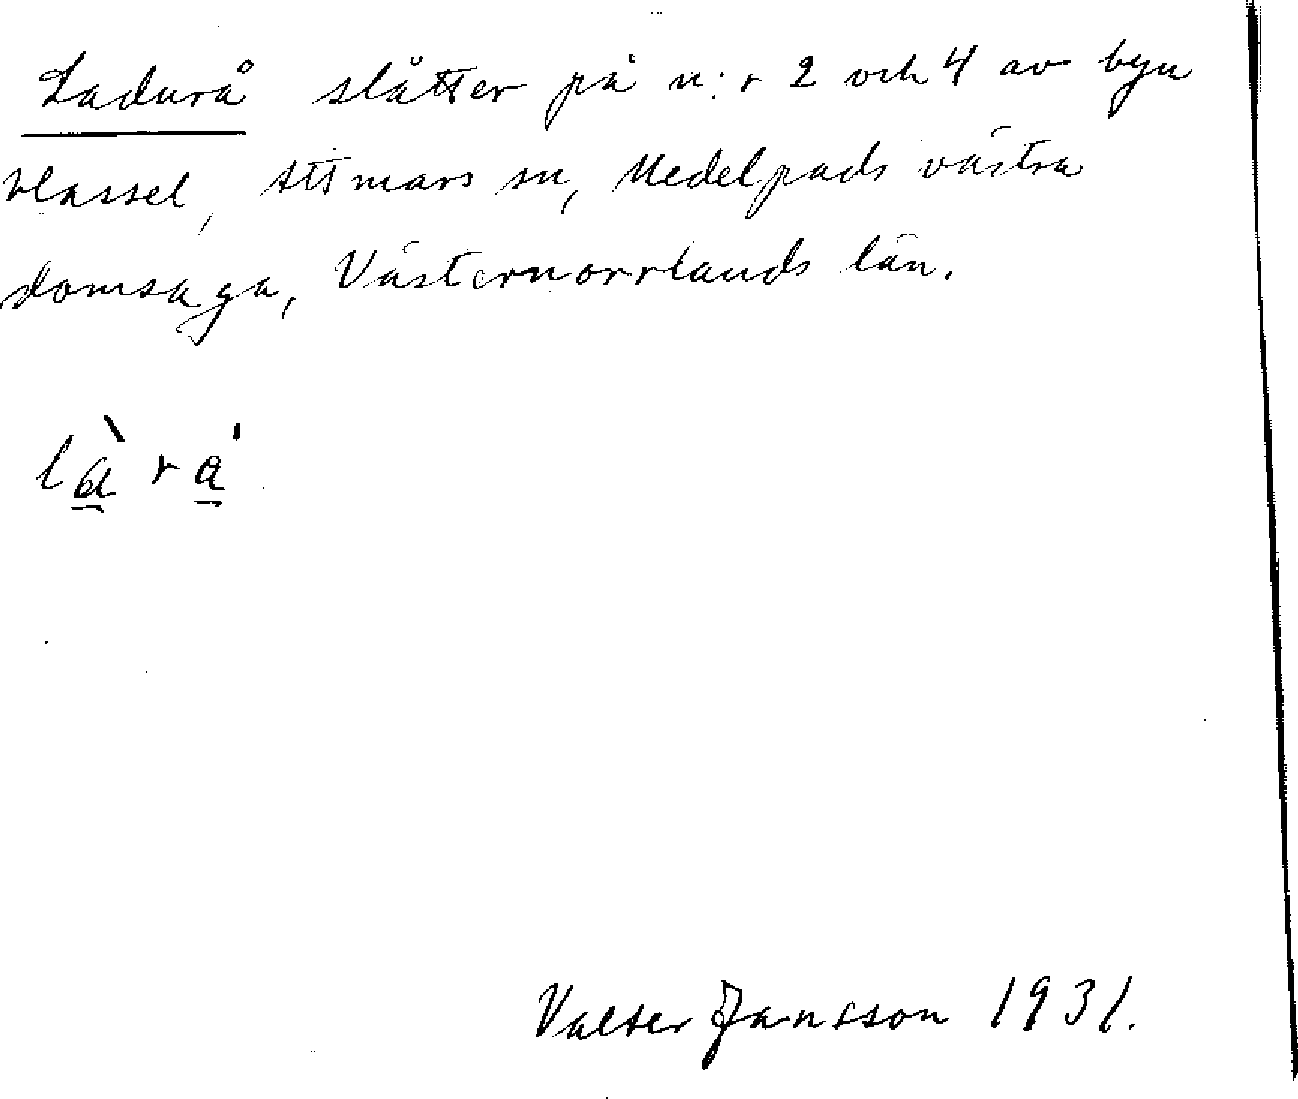 Ladurå slåtter på n:r 2 och 4 av byn
Hassel, Attmars sn, Medelpads västra
domsaga, Västernorrlands län.
là̱ rå̱'
Valter Jansson 1931.